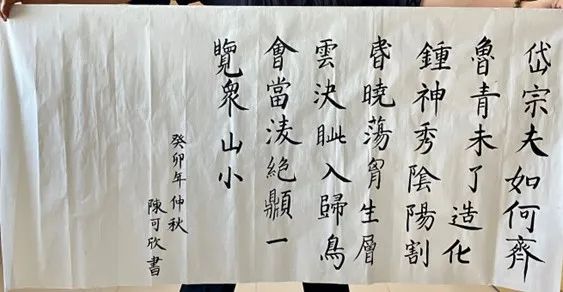 岱宗夫如何齊
魯青未了造化
鍾神秀陰陽割
昬曉蕩胷生層
雲決眦入歸鳥
會當淩絕一
覽衆山小
癸卯年仲秋
陳可欣書